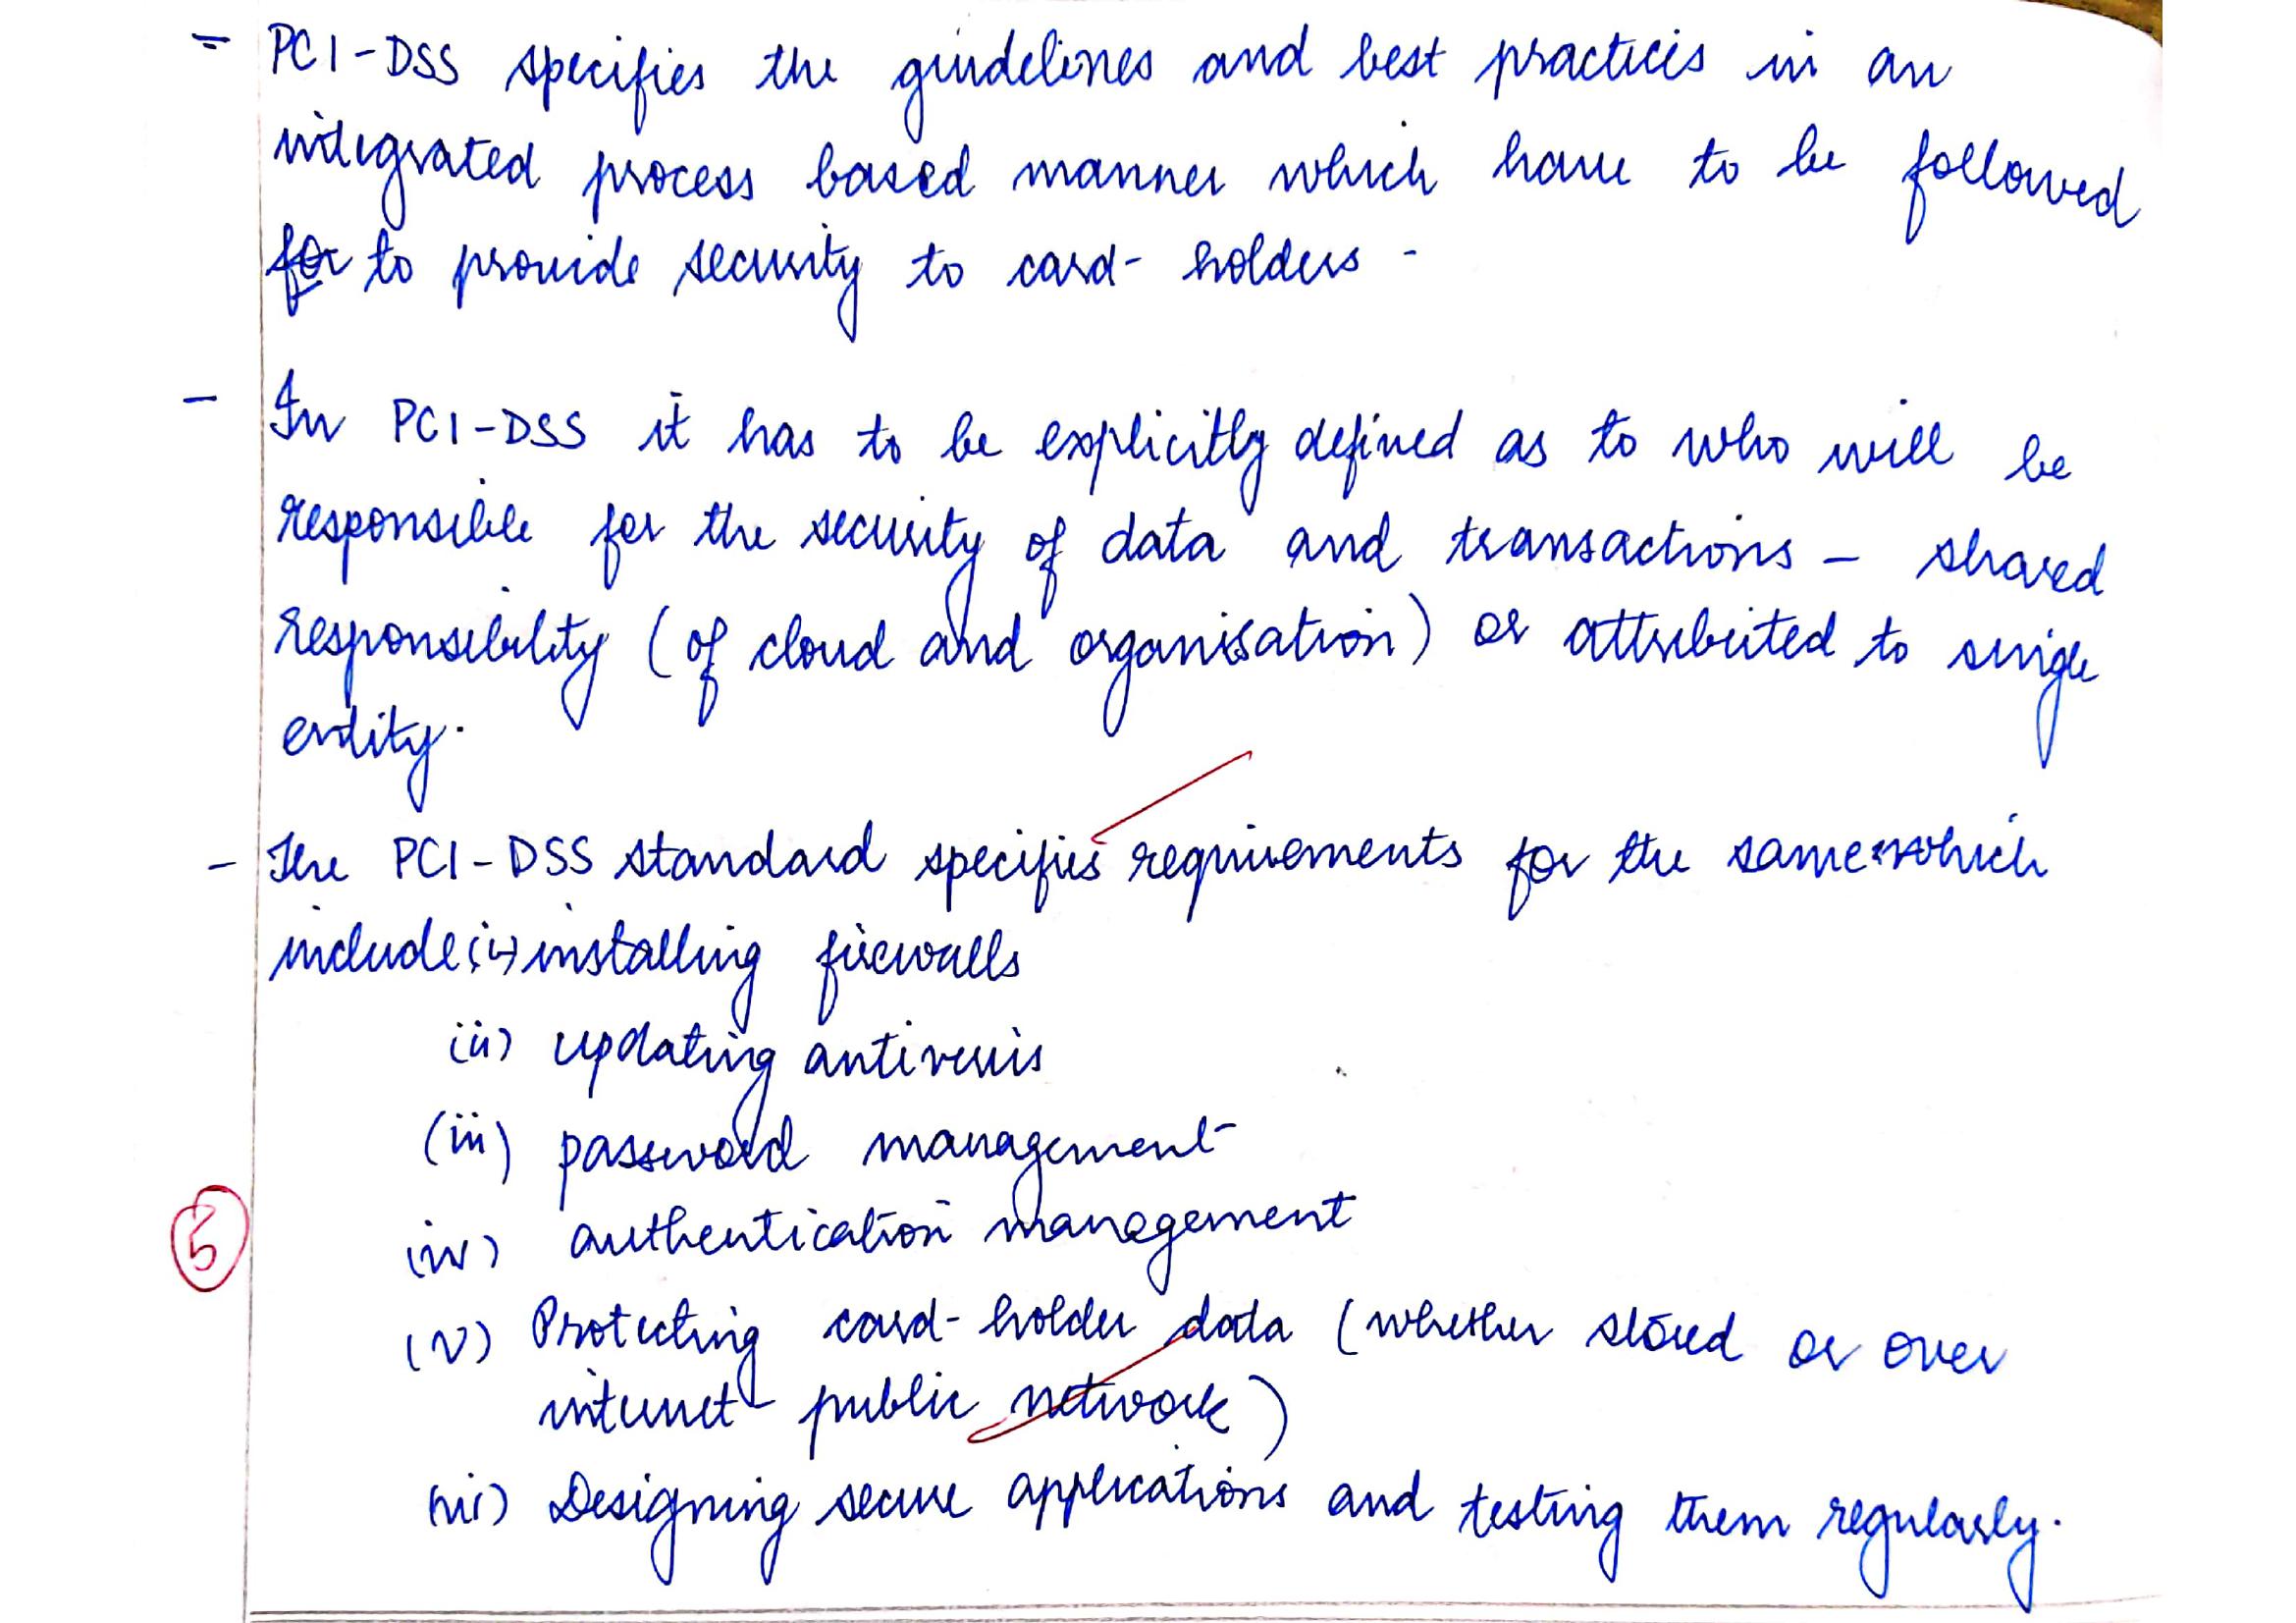 - PCI-DSS specifies the guidelines and best practices in an
integrated process based manner which have to be followed
for to provide security to card-holders.
- In PCI-DSS it has to be explicitly defined as to who will be
responsible for the security of data and transactions - shared
responsibility (of cloud and organisation) or attributed to single
entity.
- The PCI-DSS standard specifies requirements for the same which
include (i) installing firewalls
(ii) updating antivirus
(iii) password management
(iv) authentication management
5
(v) Protecting card-holder data (whether stored or over
internet public network)
(vi) Designing secure applications and testing them regularly.